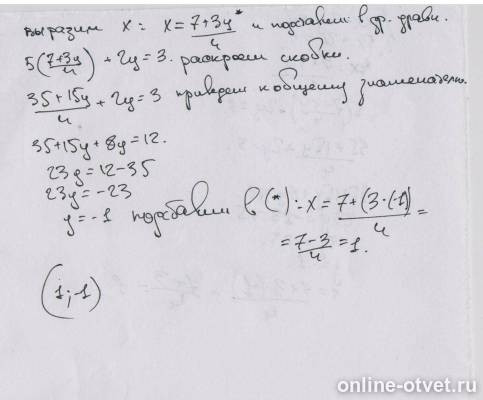 выразим x: x = (7+3y)/4 * и подставим в др. уравн.
5((7+3y)/4) + 2y = 3. раскроем скобки.
(35+15y)/4 + 2y = 3 приведем к общему знаменателю.
35+15y+8y=12.
23y = 12-35
23y = -23
y = -1 подставим в (*): x = (7+(3·(-1)))/4 =
= (7-3)/4 = 1.
(1;-1)
online-otvet.ru